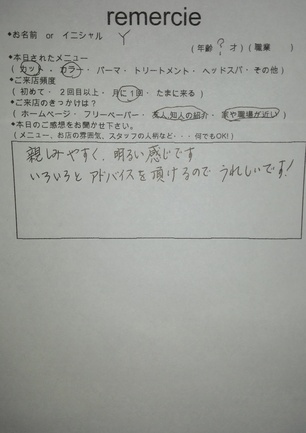 remercie
*お名前 or イニシャル Y
(年齢 ? 才)(職業 )
*本日されたメニュー
( カット・カラー・パーマ・トリートメント・ヘッドスパ・その他 )
*ご来店頻度
( 初めて・2回目以上・月に1回・たまに来る )
*ご来店のきっかけは?
( ホームページ・フリーペーパー・友人知人の紹介・家や職場が近い )
*本日のご感想をお聞かせ下さい。
(メニュー、お店の雰囲気、スタッフの人柄など・・・何でもOK!)
親しみやすく、明るい感じです
いろいろと アドバイスを頂けるので うれしいです!